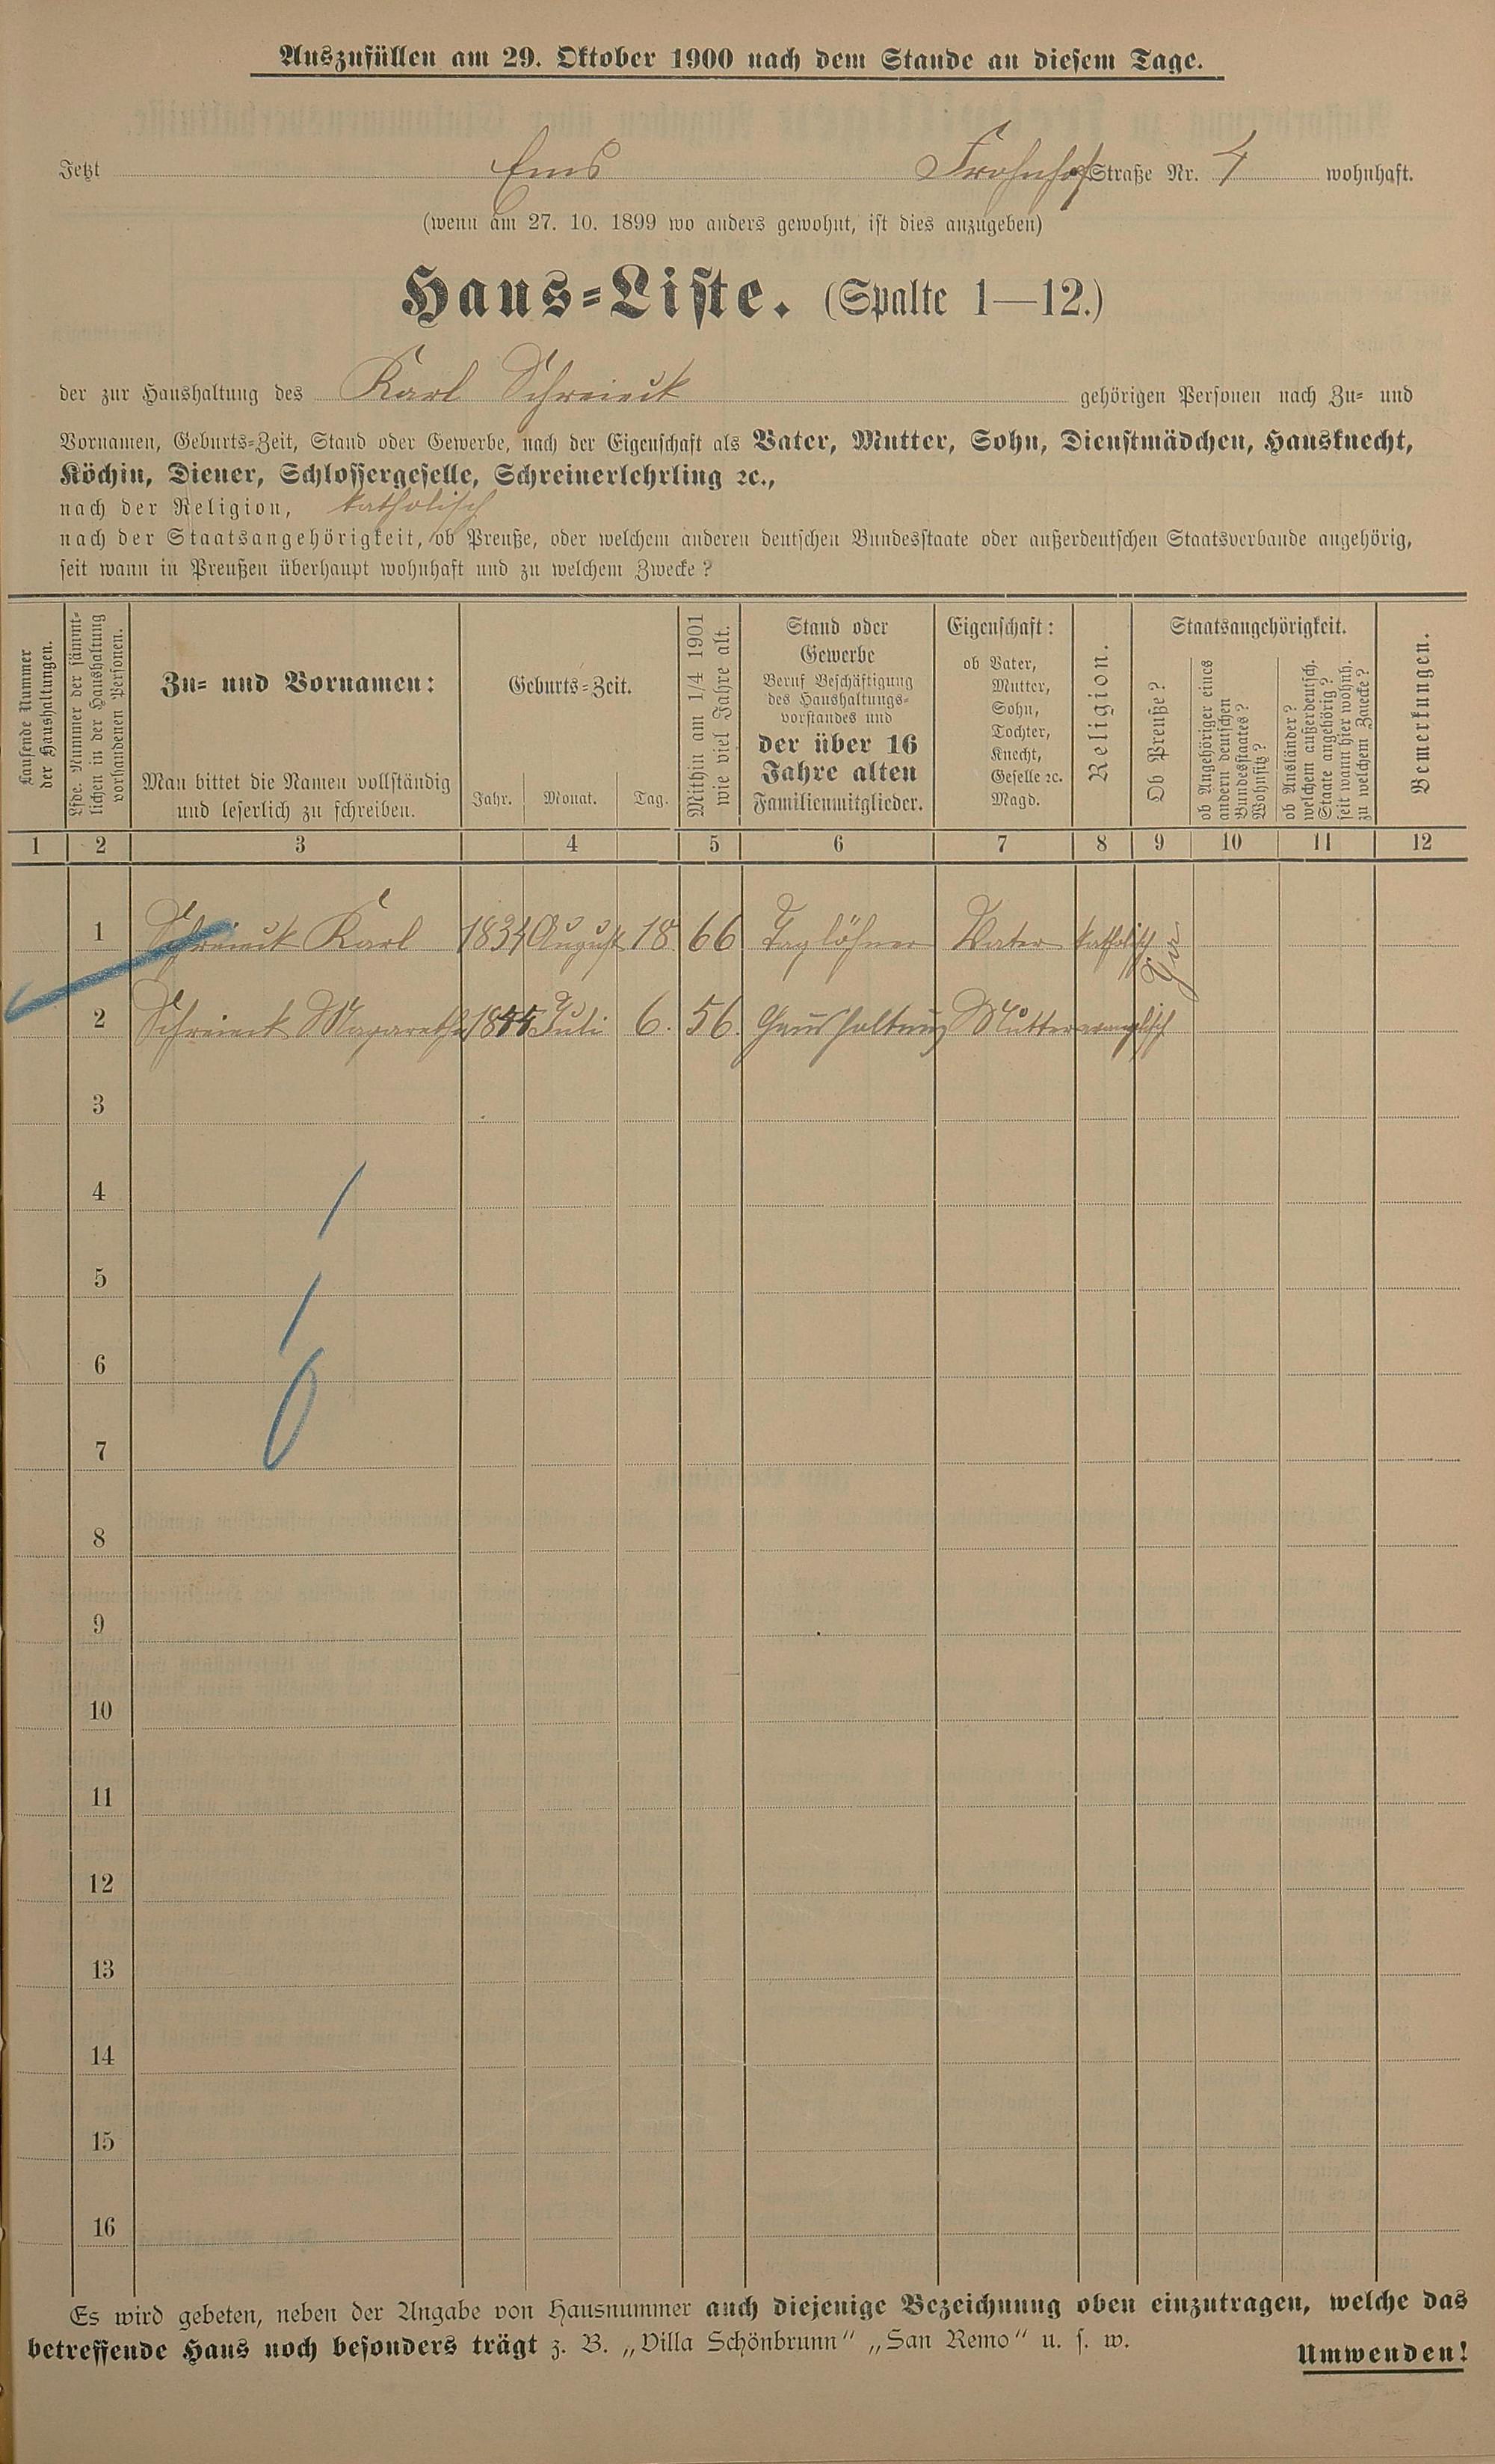 Auszufüllen am 29. Oktober 1900 nach dem Stande an diesem Tage.
Jetzt Ems Frohnhof Straße Nr. 4 wohnhaft.
(wenn am 27. 10. 1899 wo anders gewohnt, ist dies anzugeben)
Haus=Liste. (Spalte 1—12.)
der zur Haushaltung des Karl Schreieck gehörigen Personen nach Zu= und
Vornamen, Geburts=Zeit, Stand oder Gewerbe, nach der Eigenschaft als Vater, Mutter, Sohn, Dienstmädchen, Hausknecht,
Köchin, Diener, Schlossergeselle, Schreinerlehrling ꝛc.,
nach der Religion, katholisch
nach der Staatsangehörigkeit, ob Preuße, oder welchem anderen deutschen Bundesstaate oder außerdeutschen Staatsverbande angehörig,
seit wann in Preußen überhaupt wohnhaft und zu welchem Zwecke?
Laufende Nummer
der Haushaltungen.
Lfde. Nummer der sämmt-
lichen in der Haushaltung
vorhandenen Personen.
Zu= und Vornamen:
Man bittet die Namen vollständig
und leserlich zu schreiben.
Geburts=Zeit.
Jahr. Monat. Tag.
Mithin am 1/4 1901
wie viel Jahre alt.
Stand oder
Gewerbe
Beruf Beschäftigung
des Haushaltungs-
vorstandes und
der über 16
Jahre alten
Familienmitglieder.
Eigenschaft:
ob Vater,
Mutter,
Sohn,
Tochter,
Knecht,
Geselle ꝛc.
Magd.
Religion.
Staatsangehörigkeit.
Ob Preuße?
ob Angehöriger eines
andern deutschen
Bundesstaates?
Wohnsitz?
ob Ausländer?
welchem außerdeutsch.
Staate angehörig?
seit wann hier wohnh.
zu welchem Zwecke?
Bemerkungen.
1 2 3 4 5 6 7 8 9 10 11 12
1 Schreieck Karl 1834 August 18 66 Taglöhner Vater katholisch
2 Schreieck Margaretha Juli 6. 56. Haushaltung Mutter evanglisch
3
4
5
6
7
8
9
10
11
12
13
14
15
16
Es wird gebeten, neben der Angabe von Hausnummer auch diejenige Bezeichnung oben einzutragen, welche das
betreffende Haus noch besonders trägt z. B. „Villa Schönbrunn“ „San Remo“ u. s. w.
Umwenden!